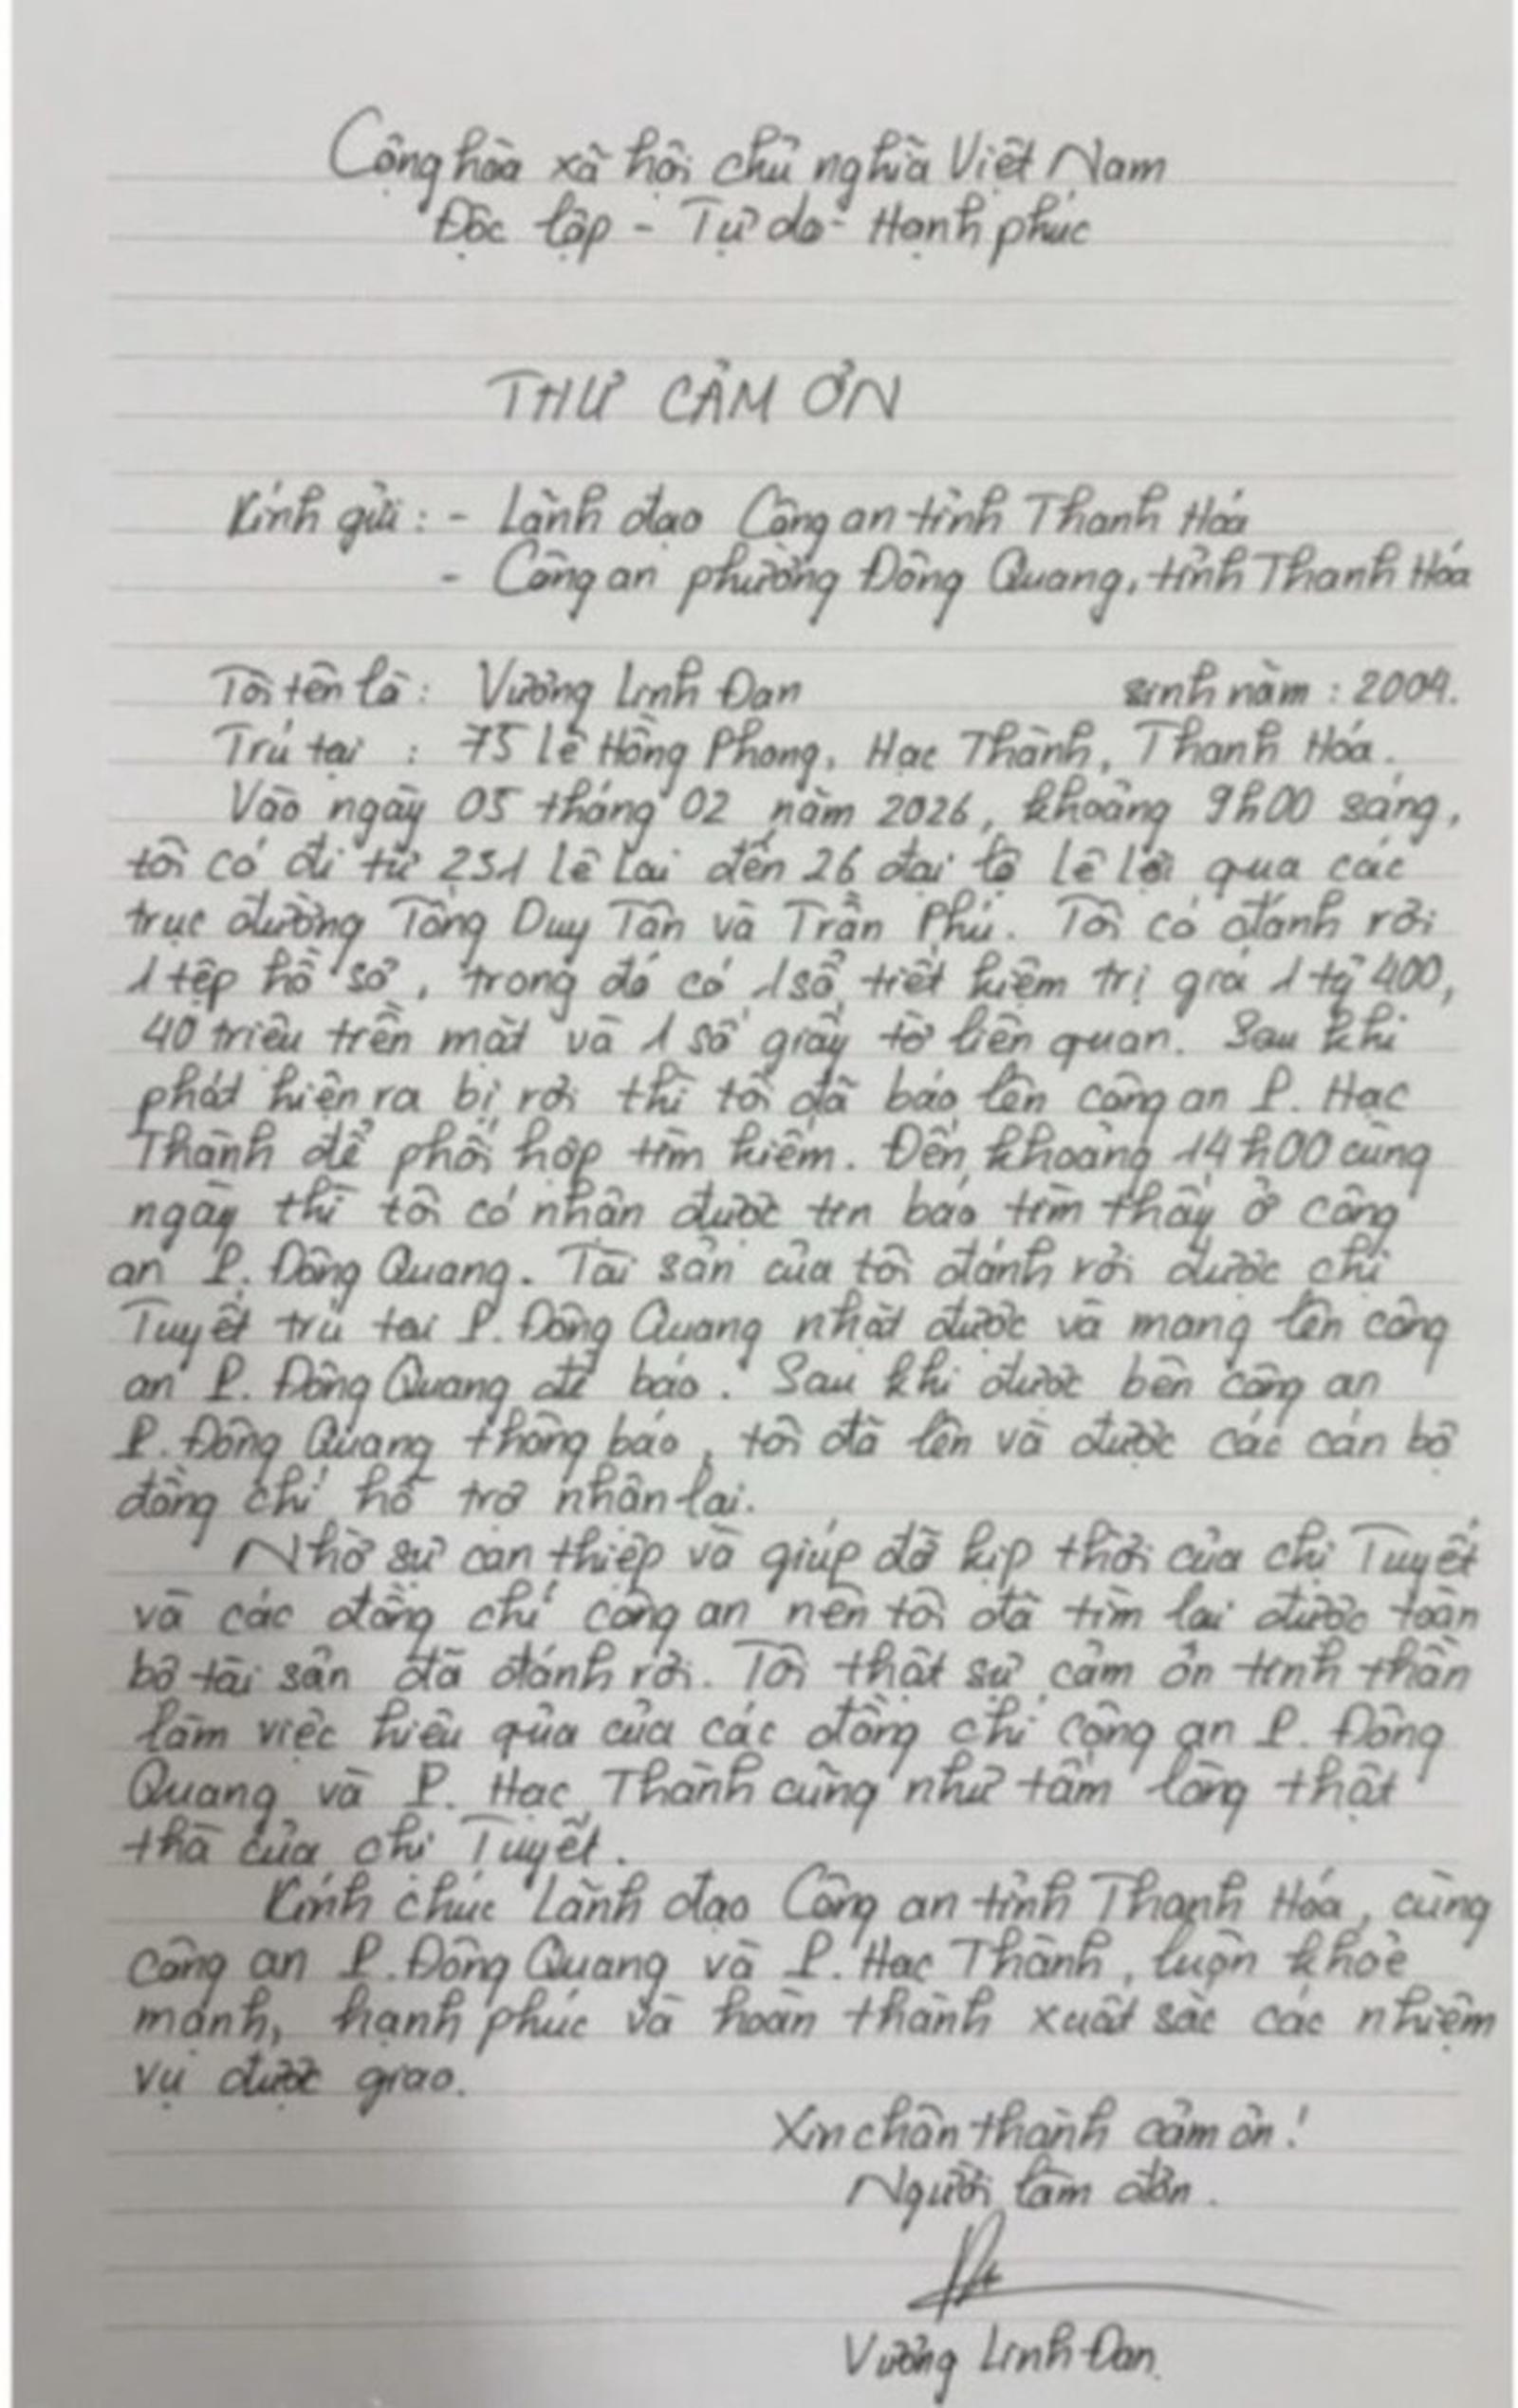 Cộng hòa xã hội chủ nghĩa Việt Nam
Độc lập - Tự do - Hạnh phúc
THƯ CẢM ƠN
Kính gửi : - Lãnh đạo Công an tỉnh Thanh Hóa
- Công an phường Đông Quang, tỉnh Thanh Hóa
Tôi tên là : Vương Linh Đan sinh năm : 2004.
Trú tại : 75 Lê Hồng Phong, Hạc Thành, Thanh Hóa.
Vào ngày 05 tháng 02 năm 2026, khoảng 9h00 sáng,
tôi có đi từ 231 Lê Lai đến 26 đại lộ Lê Lợi qua các
trục đường Tống Duy Tân và Trần Phú. Tôi có đánh rơi
1 tệp hồ sơ, trong đó có 1 sổ tiết kiệm trị giá 1 tỷ 400,
40 triệu tiền mặt và 1 số giấy tờ liên quan. Sau khi
phát hiện ra bị rơi thì tôi đã báo lên công an P. Hạc
Thành để phối hợp tìm kiếm. Đến khoảng 14h00 cùng
ngày thì tôi có nhận được tin báo tìm thấy ở công
an P. Đông Quang. Tài sản của tôi đánh rơi được chị
Tuyết trú tại P. Đông Quang nhặt được và mang lên công
an P. Đông Quang để báo. Sau khi được bên công an
P. Đông Quang thông báo, tôi đã lên và được các cán bộ
đồng chí hỗ trợ nhận lại.
Nhờ sự can thiệp và giúp đỡ kịp thời của chị Tuyết
và các đồng chí công an nên tôi đã tìm lại được toàn
bộ tài sản đã đánh rơi. Tôi thật sự cảm ơn tinh thần
làm việc hiệu qủa của các đồng chí công an P. Đông
Quang và P. Hạc Thành cũng như tấm lòng thật
thà của chị Tuyết.
Kính chúc Lãnh đạo Công an tỉnh Thanh Hóa, cùng
công an P. Đông Quang và P. Hạc Thành, luôn khỏe
mạnh, hạnh phúc và hoàn thành xuất sắc các nhiệm
vụ được giao.
Xin chân thành cảm ơn !
Người làm đơn.
Vương Linh Đan